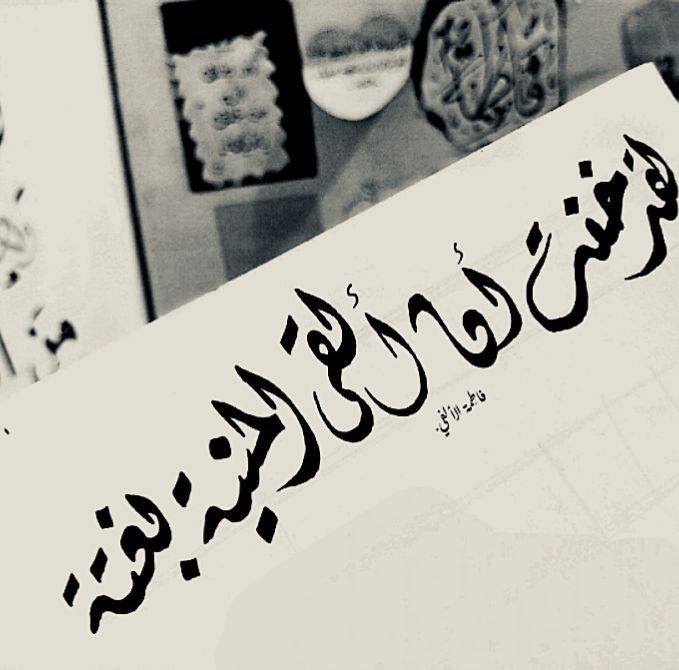 لقد خفت أن ألقى المنية بغتة
فاطمة الألفي.